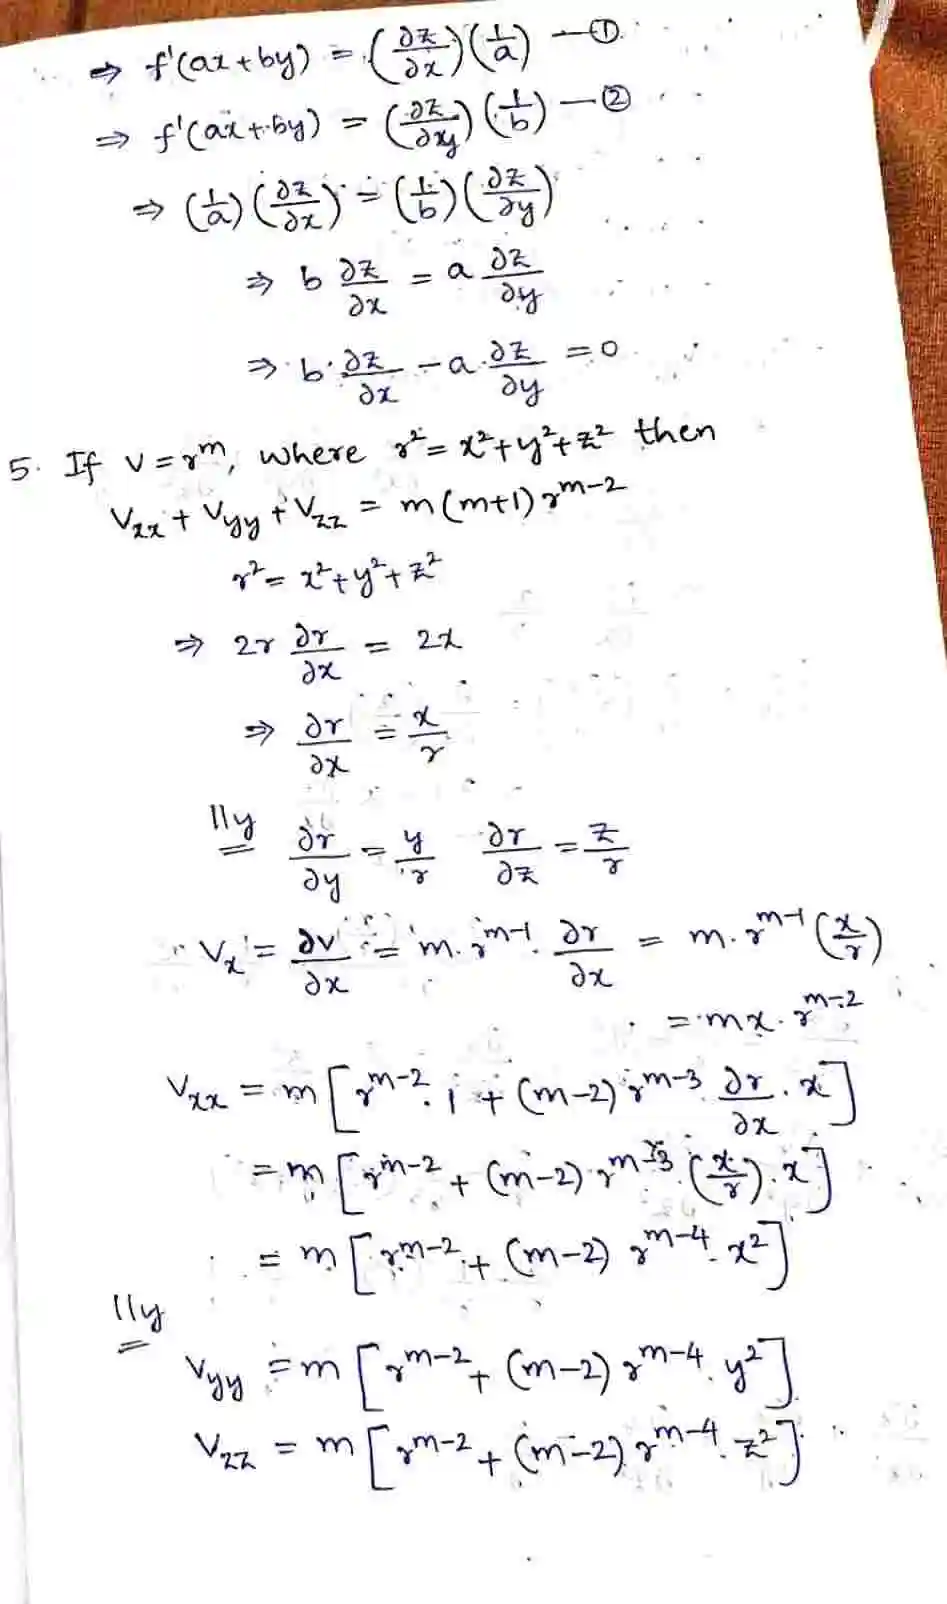 ⇒ f'(ax+by) = (∂z/∂x)(1/a) —①
⇒ f'(ax+by) = (∂z/∂y)(1/b) —②
⇒ (1/a)(∂z/∂x) = (1/b)(∂z/∂y)
⇒ b ∂z/∂x = a ∂z/∂y
⇒ b·∂z/∂x - a·∂z/∂y = 0
5. If v = r^m, where r² = x²+y²+z² then
Vxx + Vyy + Vzz = m(m+1) r^(m-2)
r² = x²+y²+z²
⇒ 2r ∂r/∂x = 2x
⇒ ∂r/∂x = x/r
lly ∂r/∂y = y/r ∂r/∂z = z/r
Vx = ∂v/∂x = m·r^(m-1)·∂r/∂x = m·r^(m-1)(x/r)
= mx·r^(m-2)
Vxx = m[r^(m-2)·1 + (m-2) r^(m-3) ∂r/∂x·x]
= m[r^(m-2) + (m-2)·r^(m-3)·(x/r)·x]
= m[r^(m-2) + (m-2) r^(m-4)·x²]
lly
Vyy = m[r^(m-2) + (m-2) r^(m-4)·y²]
Vzz = m[r^(m-2) + (m-2) r^(m-4)·z²]